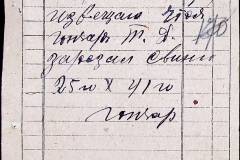 извещаю что я
гончар Т. Д.
зарезал свини
25 го X 41 го
гончар